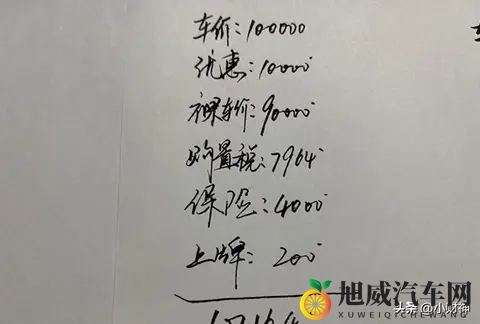 车价:100000
优惠:10000
裸车价:90000
购置税:7964
保险:4000
上牌: 200
旭威汽车网
XUWEIQICHEWANG
头条 @小财神